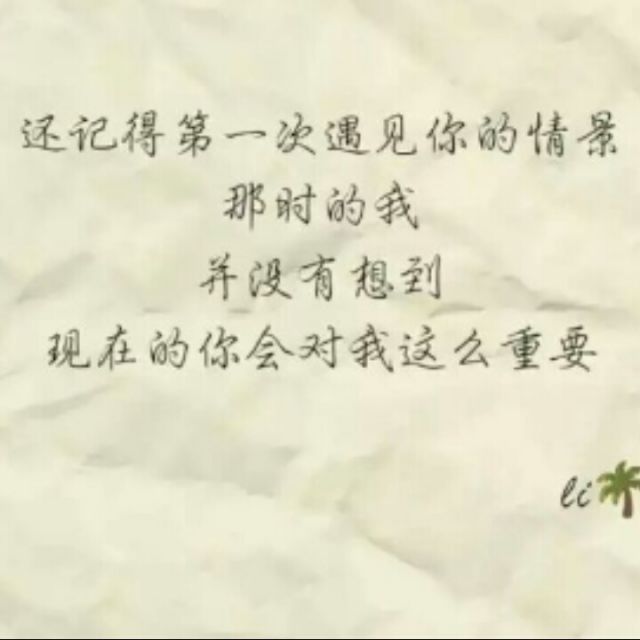 还记得第一次遇见你的情景
那时的我
并没有想到
现在的你会对我这么重要
li